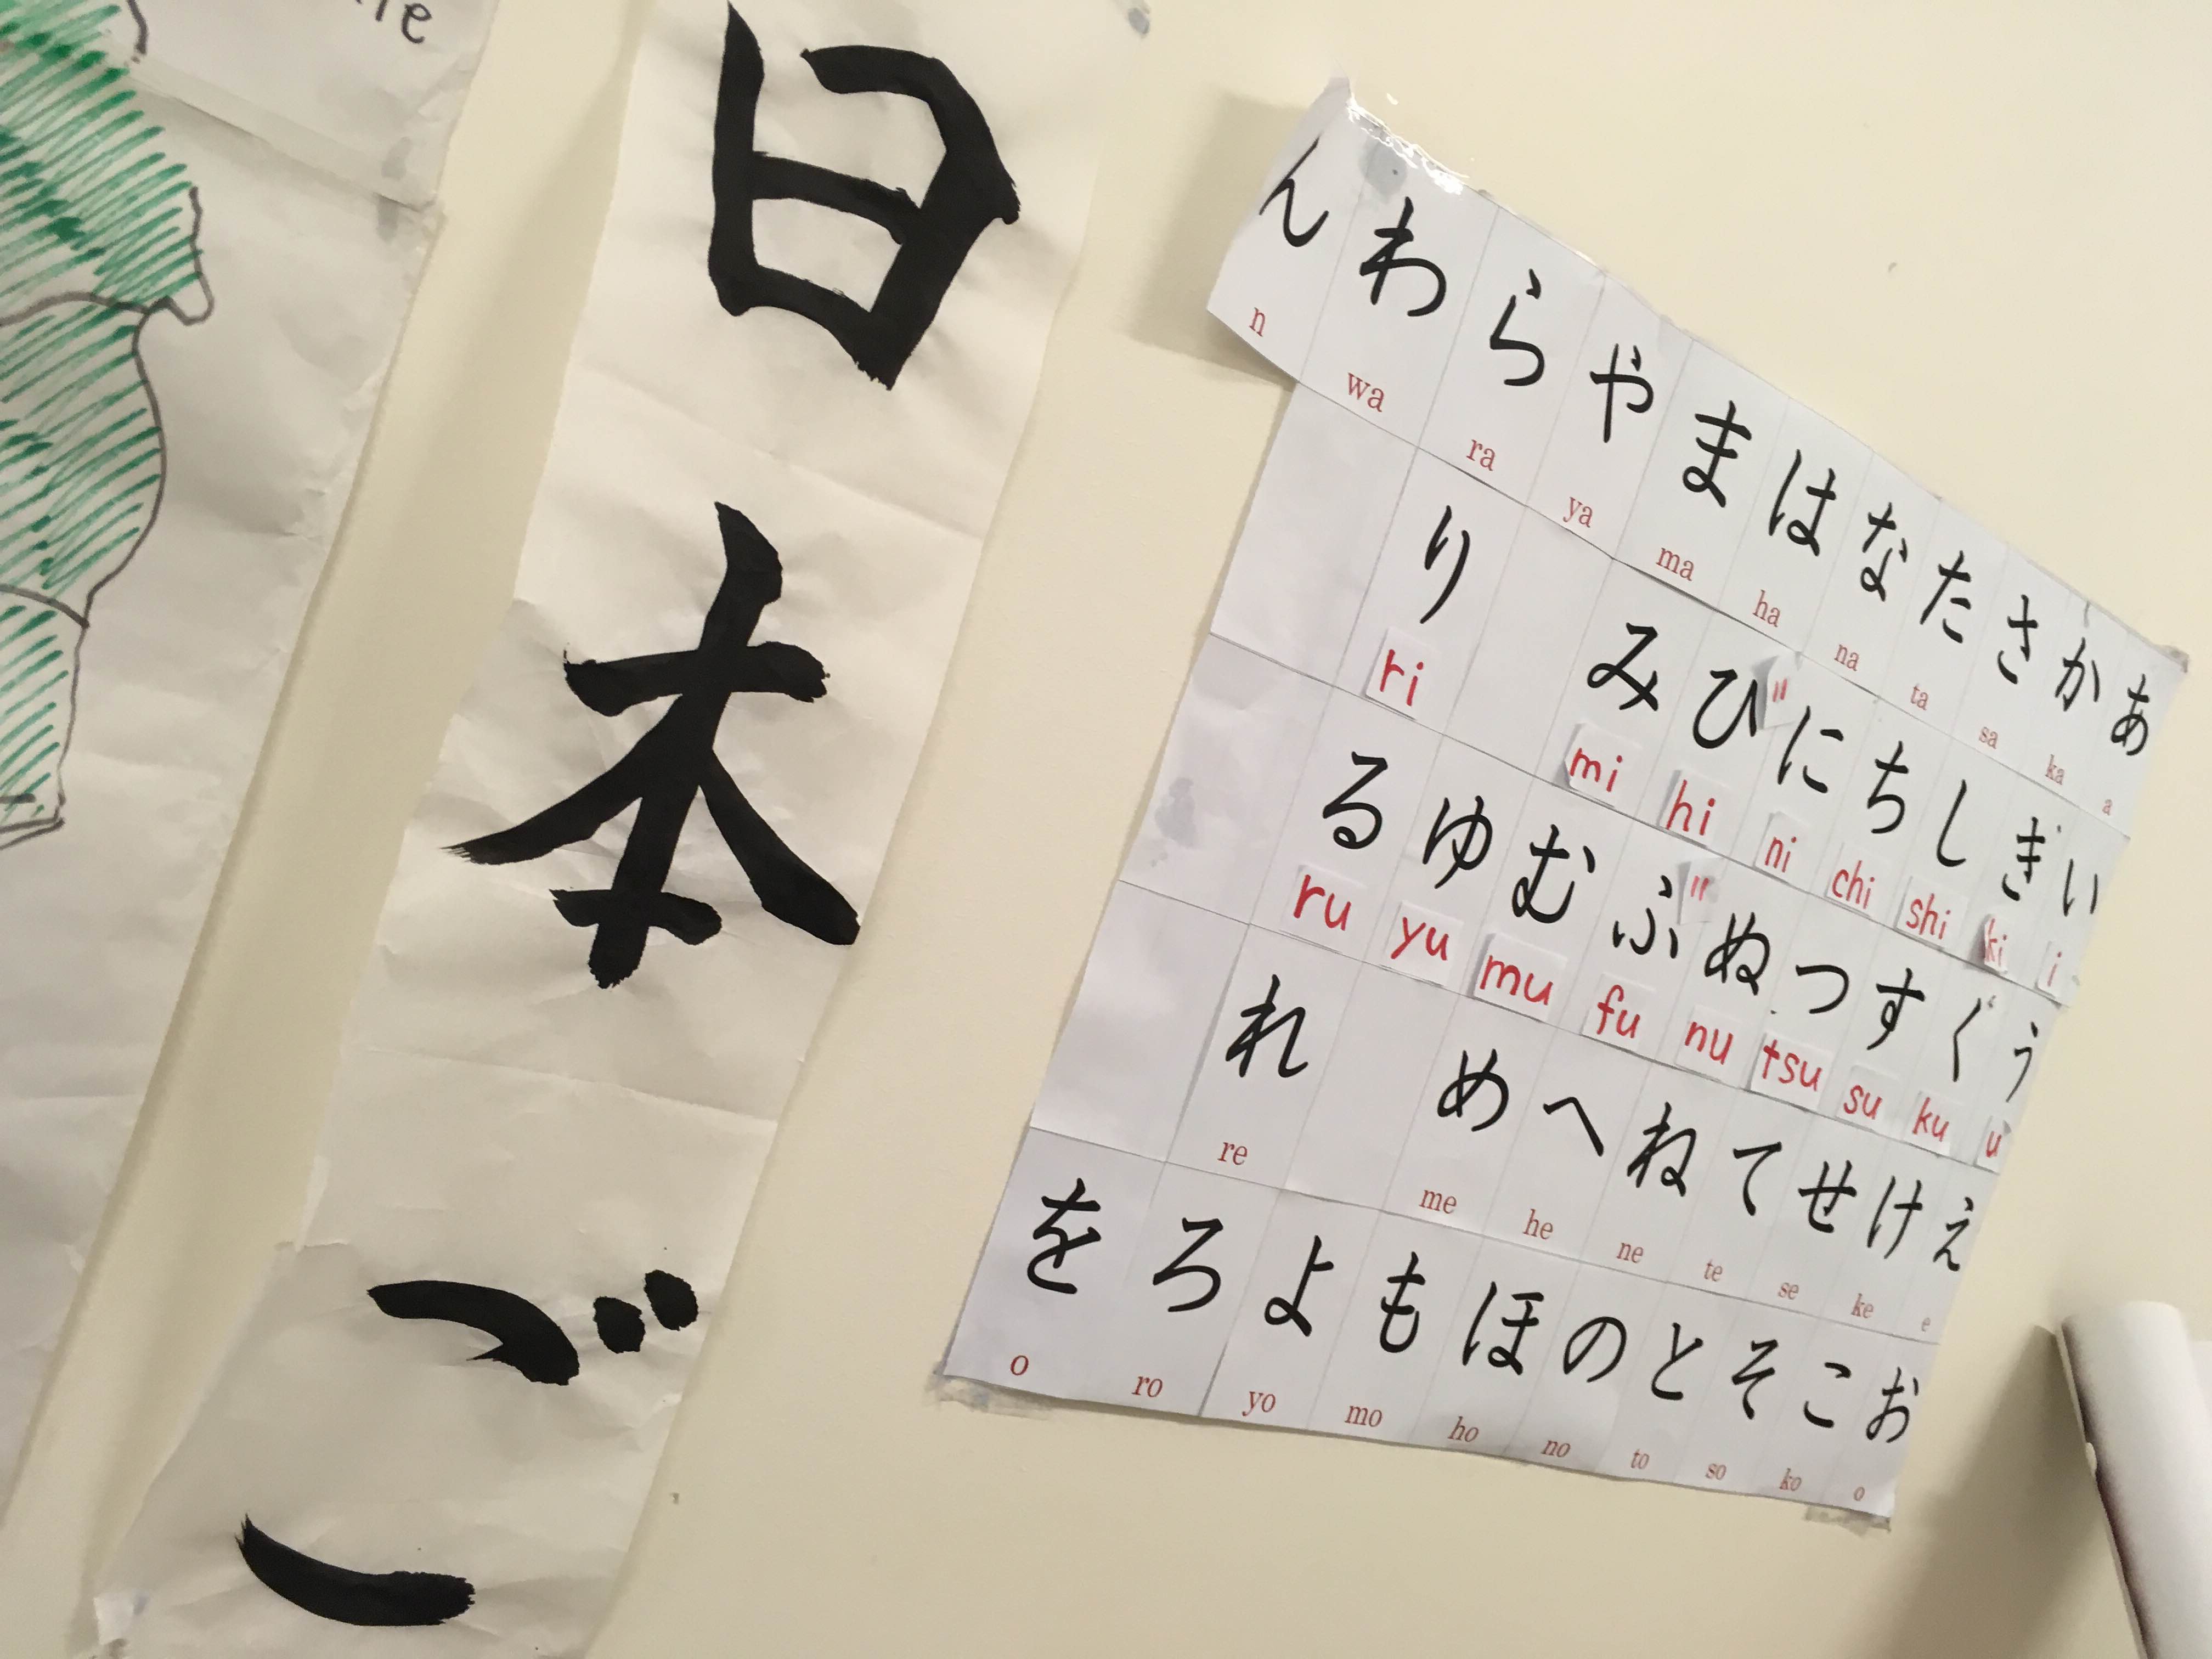 日本ご
ん わ ら や ま は な た さ か あ
n wa ra ya ma ha na ta sa ka a
り み ひ" に ち し ぎ い
ri mi hi ni chi shi ki i
る ゆ む ふ" ぬ つ す ぐ う
ru yu mu fu nu tsu su ku u
れ め へ ね て せ け え
re me he ne te se ke e
を ろ よ も ほ の と そ こ お
o ro yo mo ho no to so ko o